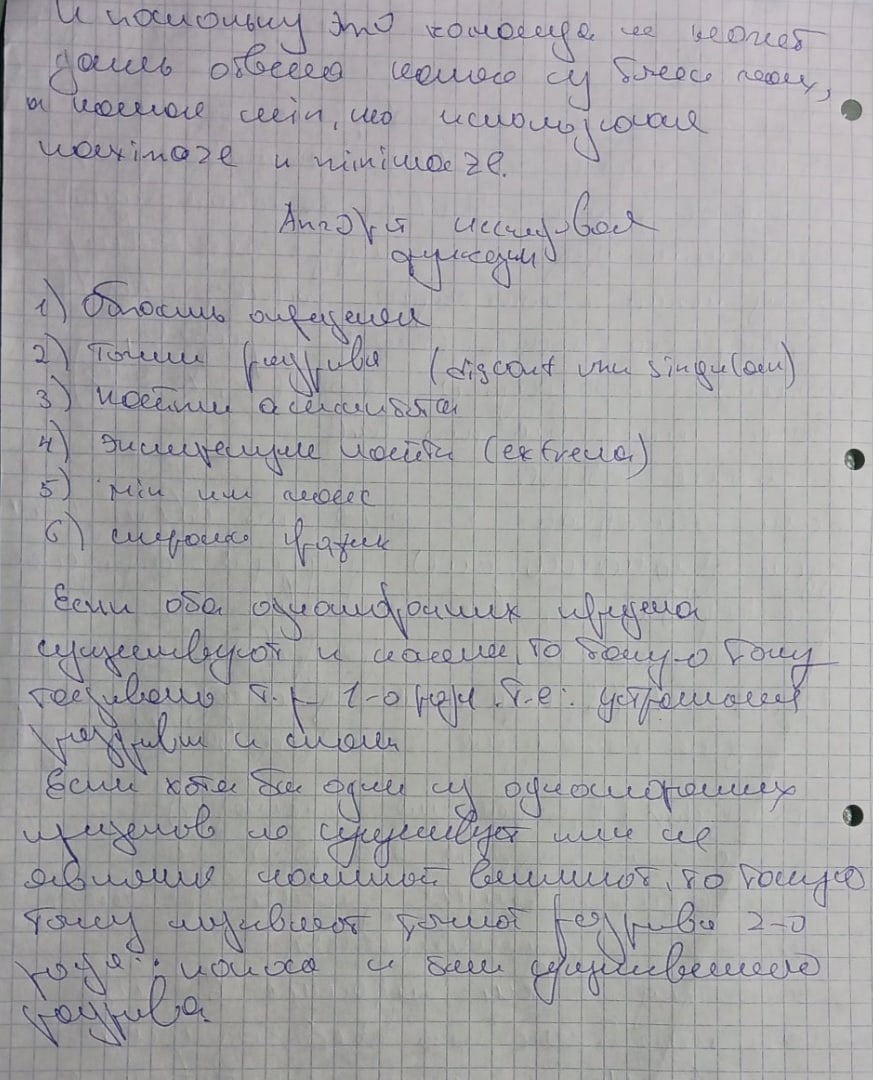 И поскольку это команда не может
дать ответа какое из них,
а какое min, но использования
maximaze и minimaze.
Алгор-я исследован
функции
1) Область определения
2) точки разрыва (discont или singular)
3) найти асимптоты
4) экстремумы найти (extrema)
5) min или макс
6) строим график
Если оба односторонних предела
существуют и конечны, то такую точку
называют т. р 1-о рода. т.е: устранимый
разрывы и скачки
Если хотя бы один из односторонних
пределов не существует или не
является конечной величиной, то такую
точку называют точкой разрыва 2-о
рода: полюса и существенного
разрыва.